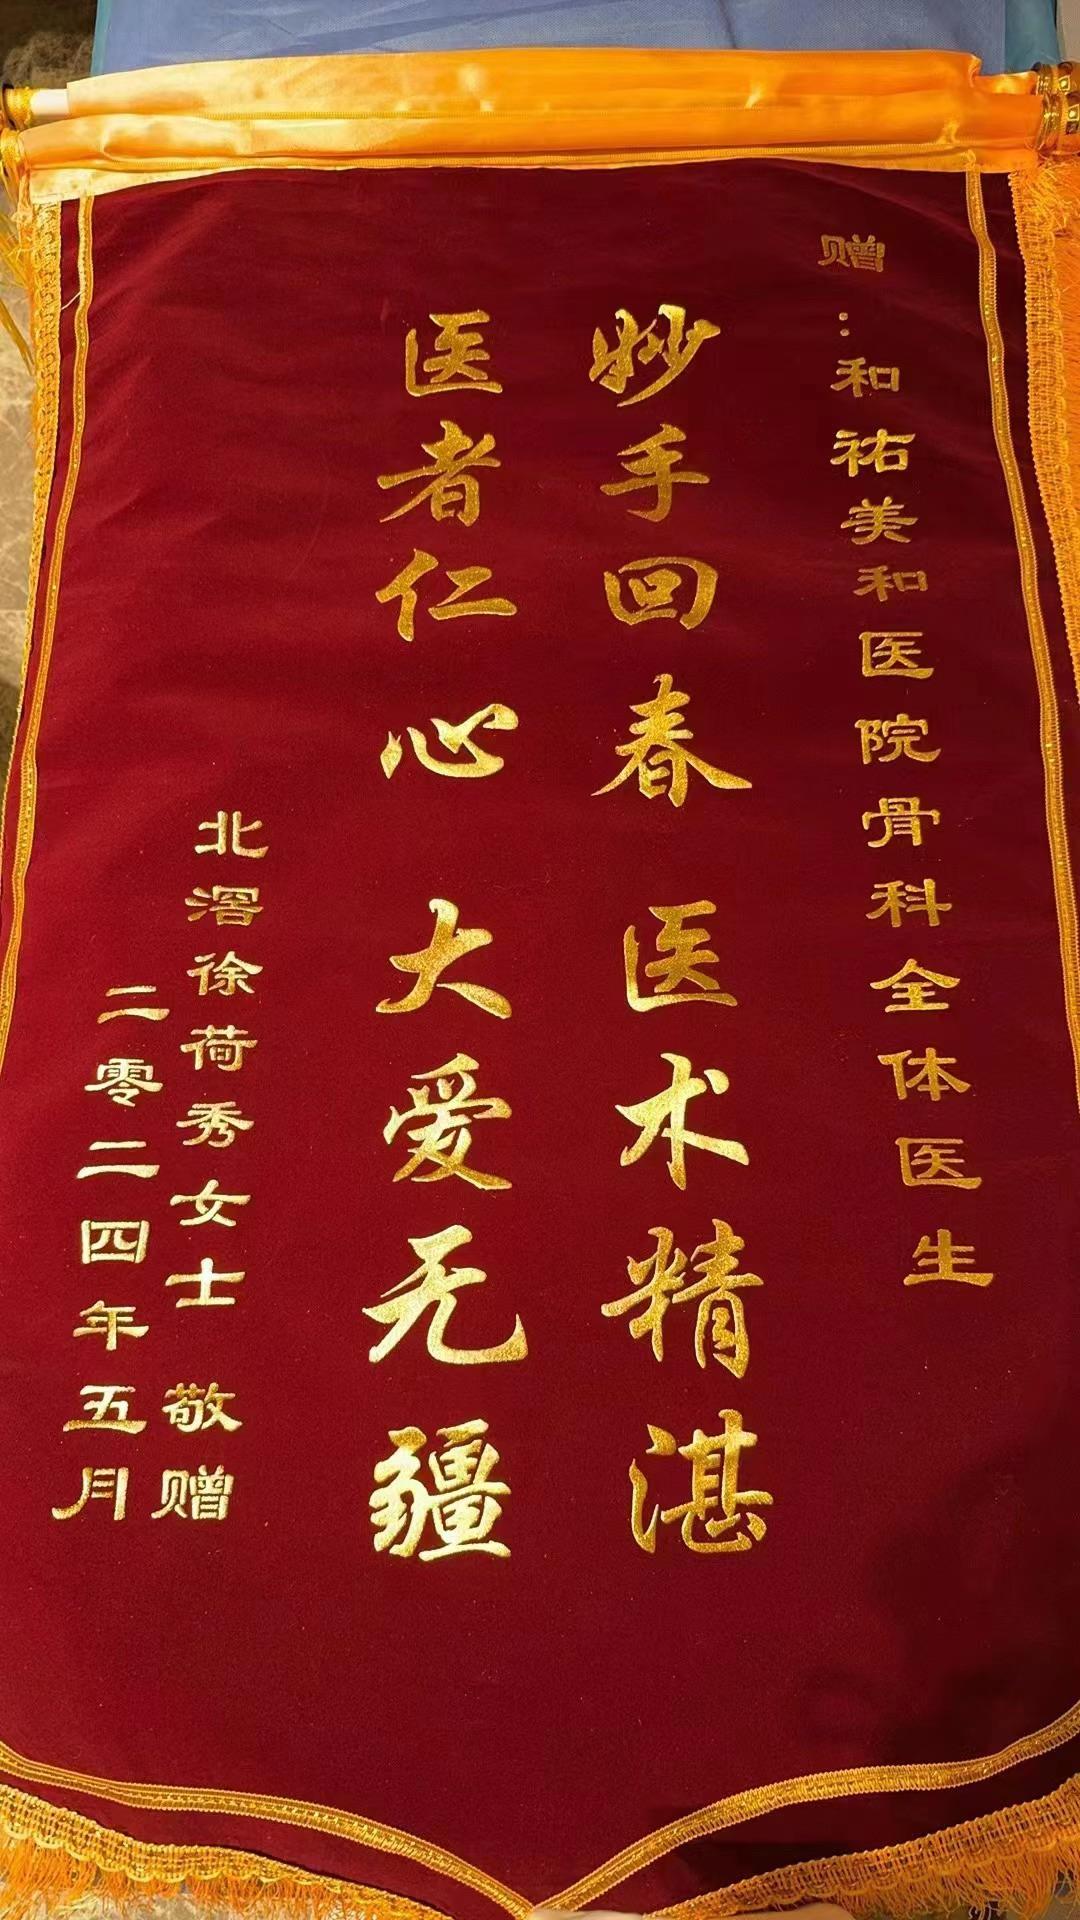 赠:和祐美和医院骨科全体医生
妙手回春 医术精湛
医者仁心 大爱无疆
北滘徐荷秀女士 敬赠
二零二四年五月